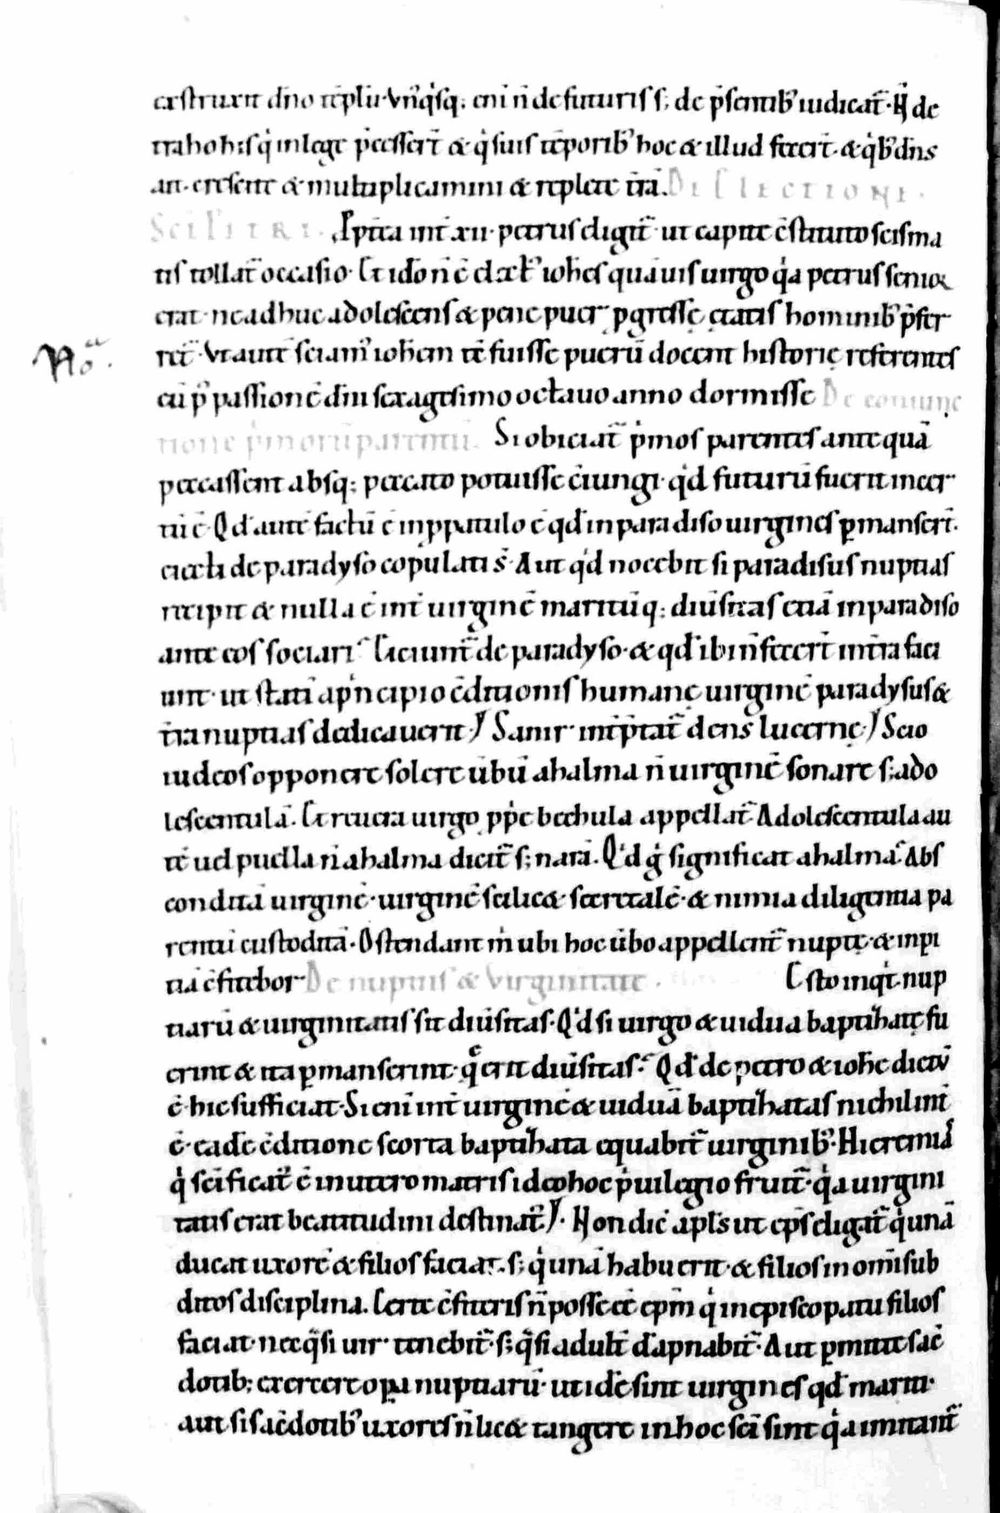 exstruxit dn̄o tēplū. Vn̄q'sq; eni n̄ de futuris s; de p̄sentib' iudicat̄. N̄ de
traho his q' in lege p̄cesser̄t & q' suis tēporib' hoc & illud fecer̄t. & q'b' dn̄s
ait. crescite & multiplicamini & replete t̄rā. DE ELECTIONE
SCĪ PETRI. Ppt̄ea int̄ .xii. petrus eligit̄. ut capite c̄stituto scisma
tis tollat̄ occasio. Et ido n̄ ē elect' ioh̄es quāuis uirgo q'a petrus senior
erat. ne adhuc adolescens & pene puer p̄gressę ętatis hominib' p̄fer
ret̄. Ut autē sciam' ioh̄em tc̄ fuisse puerū docent historię referentes
Noᵗᵃ.
eū p' passionē dn̄i sexagesimo octauo anno dormisse De coniunc
tione p'morū parentū. Si obiciat̄ p'mos parentes ante quā
peccassent absq; peccato potuisse c̄iungi. q'd futurū fuerit incer
tū ē. Qd' autē factū ē in p̄patulo ē qd' in paradiso uirgines p̄manser̄t.
eiecti de paradyso copulati s̄. Aut q'd nocebit si paradisus nuptias
recipit & nulla ē int̄ uirginē maritūq; diu̅sitas etiā in paradiso
ante eos sociari. Eiciunt̄ de paradyso. & qd' ibi n̄ fecer̄t in t̄ra faci
unt. ut stati a p'ncipio c̄ditionis humanę uirginē paradysus &
t̄ra nuptias dedicauerit. Sanir int̄p̄tat̄ dens lucernę. Scio
iudeos opponere solere u̅bū ahalma n̄ uirginē sonare s; ado
lescentulā. Et reuera uirgo pp̄e bechula appellat̄. Adolescentula au
tē uel puella n̄ ahalma dicit̄ s; nara. Q'd g' significat ahalma. Abs
conditā uirginē. uirginē scilic& secretalē. & nimia diligentia pa
rentū custoditā. Ostendant m̄ ubi hoc u̅bo appellent̄ nuptę. & inpi
tiā c̄fitebor De nuptiis & uirginitate. Esto inq't. nup
tiarū & uirginitatis sit diu̅sitas. Q'd si uirgo & uidua baptizatę fu
erint & ita p̄manserint. quę erit diu̅sitas. Qd' de petro & ioh̄e dictū
ē. hic sufficiat. Si eni int̄ uirginē & uiduā baptizatas nichil int̄
ē. eadē c̄ditione scorta baptizata equabit̄ uirginib'. Hieremia
q' scīficat' ē in utero matris ideo hoc p'uilegio fruit̄. q'a uirgini
tatis erat beatitudini destinat̄. Non dic̄ apl̄s ut ep̄s eligat̄ q' unā
ducat uxorē & filios faciat. s; q' unā habuerit. & filios in om̄i sub
ditos disciplina. Certe c̄fiteris n̄ posse eē ep̄m q' in episcopatu filios
faciat. nec q̄si uir tenebit̄. s; q̄si adult̄ dāpnabit̄. Aut p̄mitte sac̄
dotib; exercere opa nuptiarū. ut idē sint uirgines qd' mariti.
aut si sac̄dotib' uxores n̄ lic& tangere in hoc scī sint q'a imitant̄